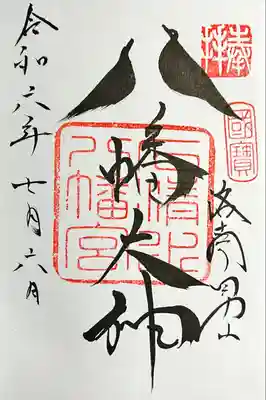 奉拝
國寶
洛南男山
八幡大神
石清水八幡宮
令和六年七月六日